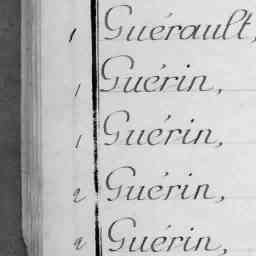 1 Guérault,
1 Guérin,
1 Guérin,
2 Guérin,
2 Guérin,